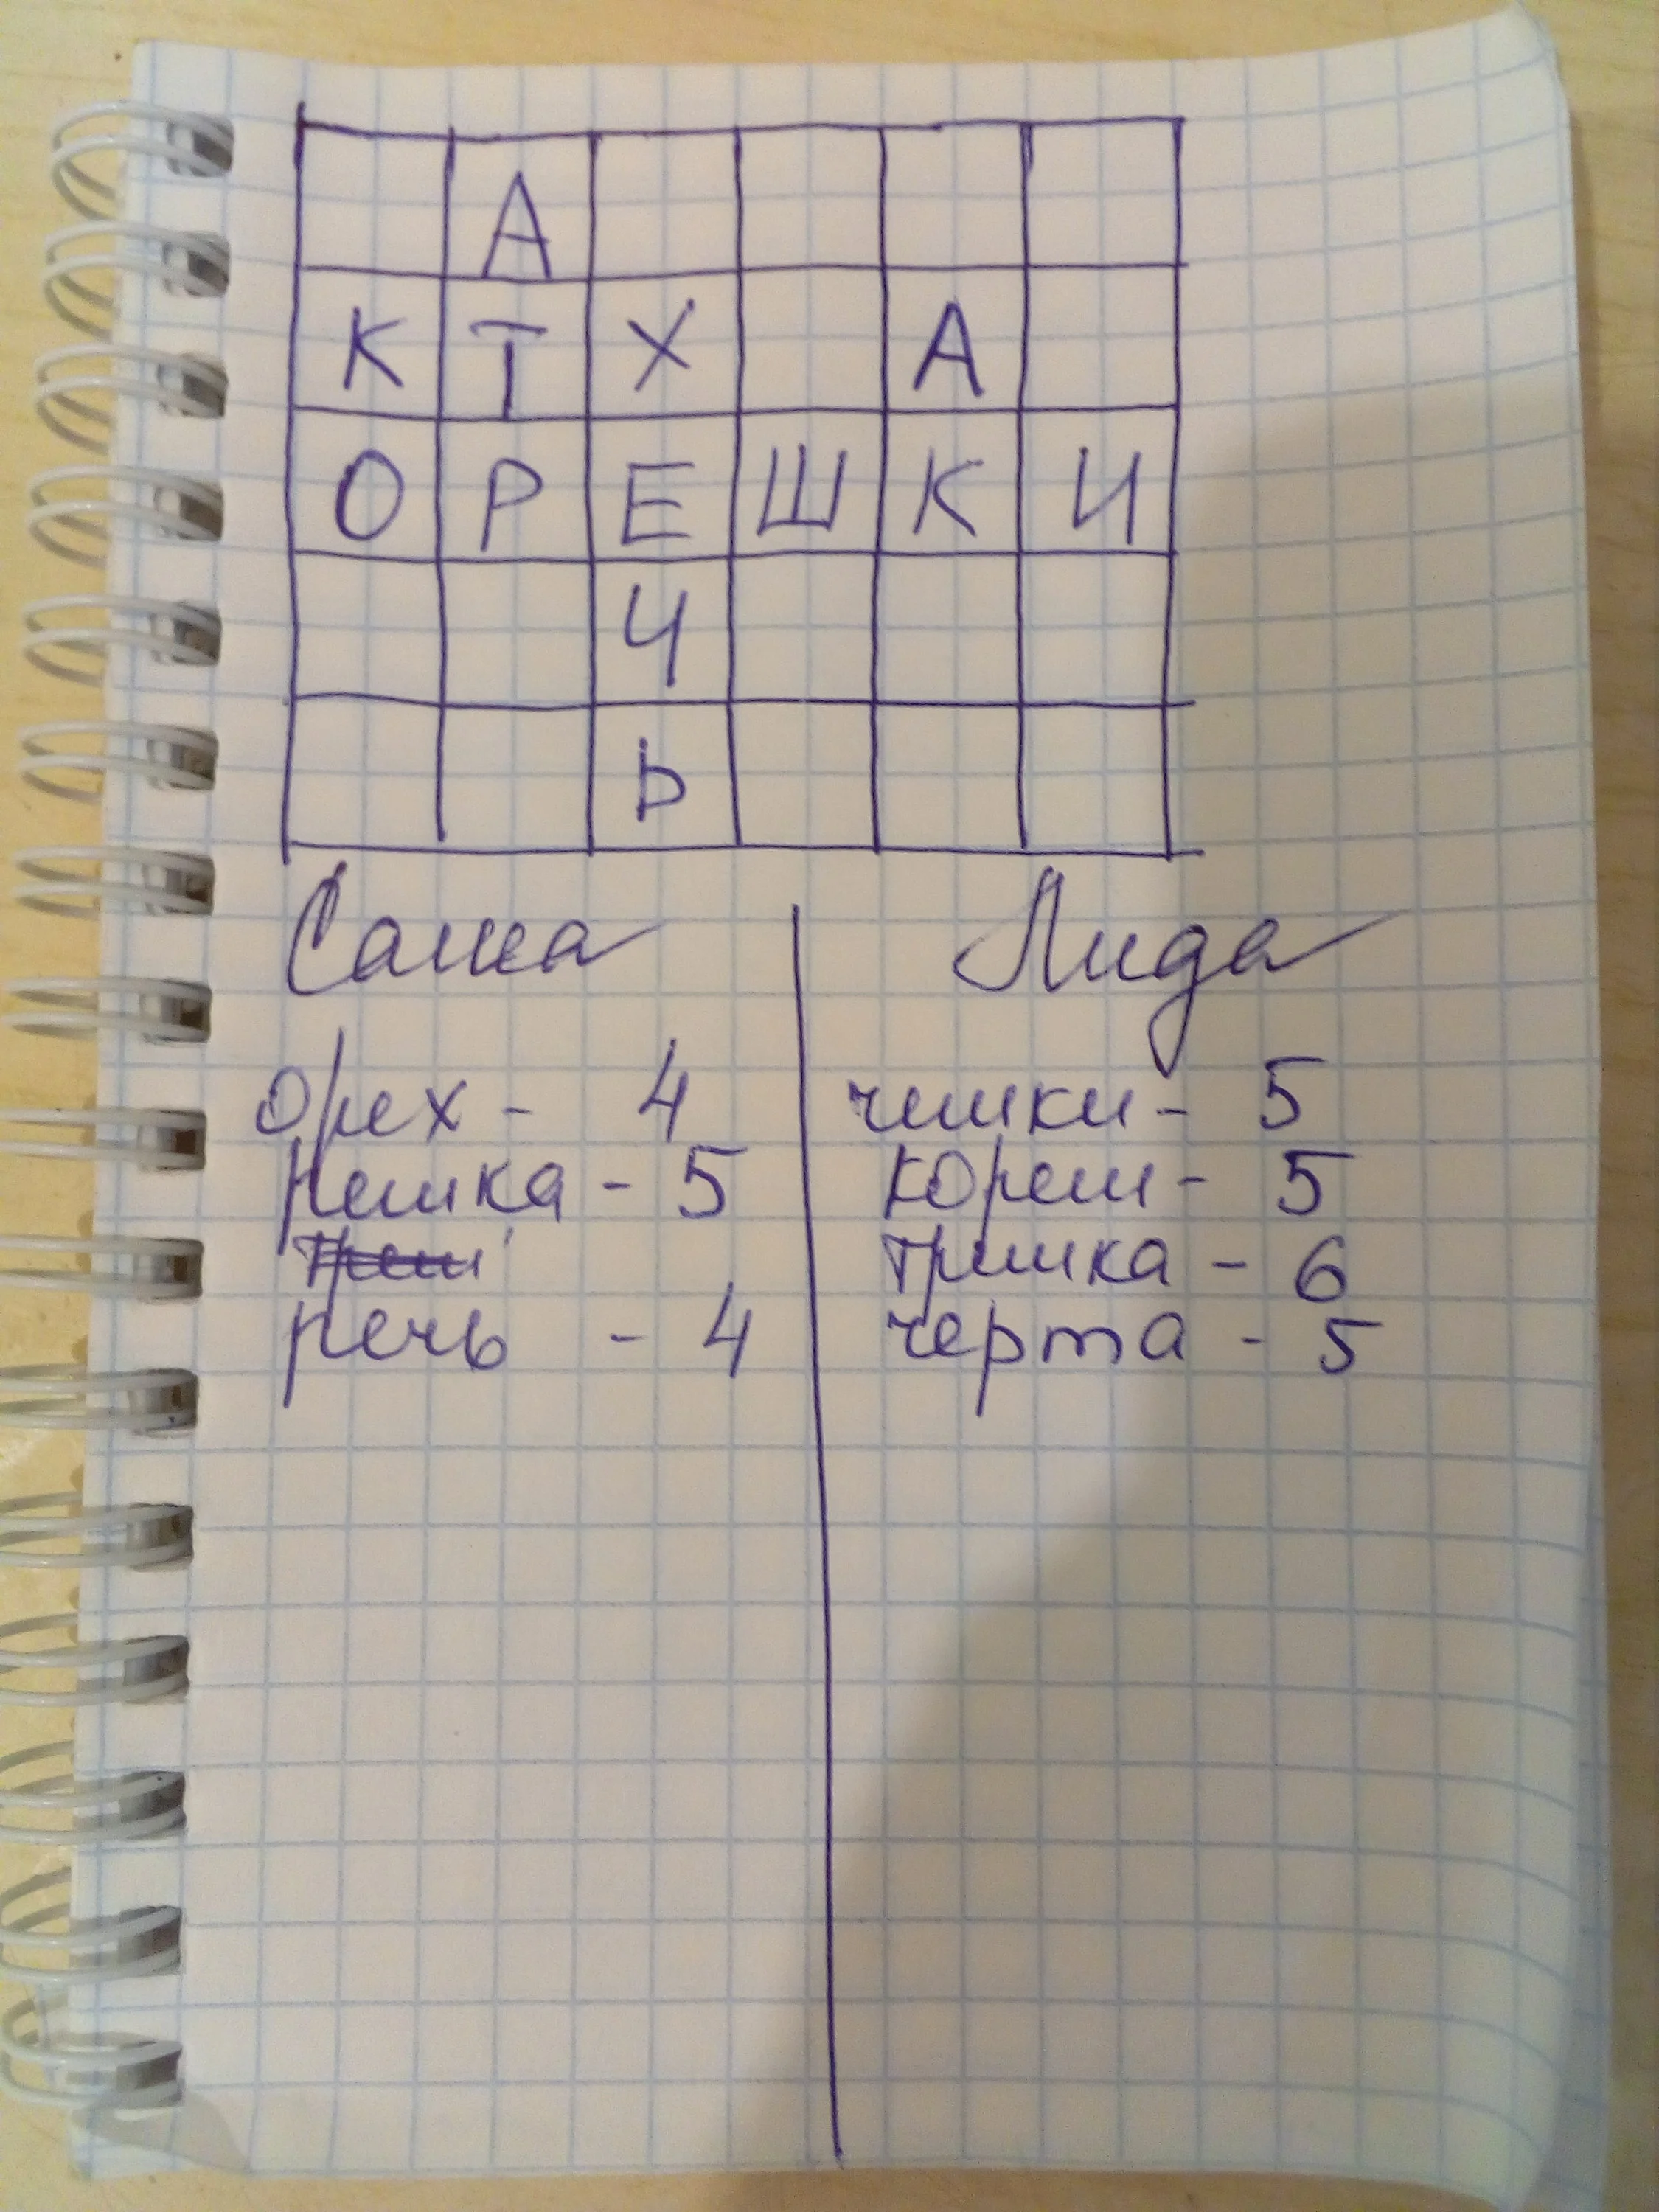 А
К Т Х А
О Р Е Ш К И
Ч
Ь
Саша Лида
орех - 4 чешки - 5
решка - 5 кореш - 5
треш трешка - 6
речь - 4 черта - 5